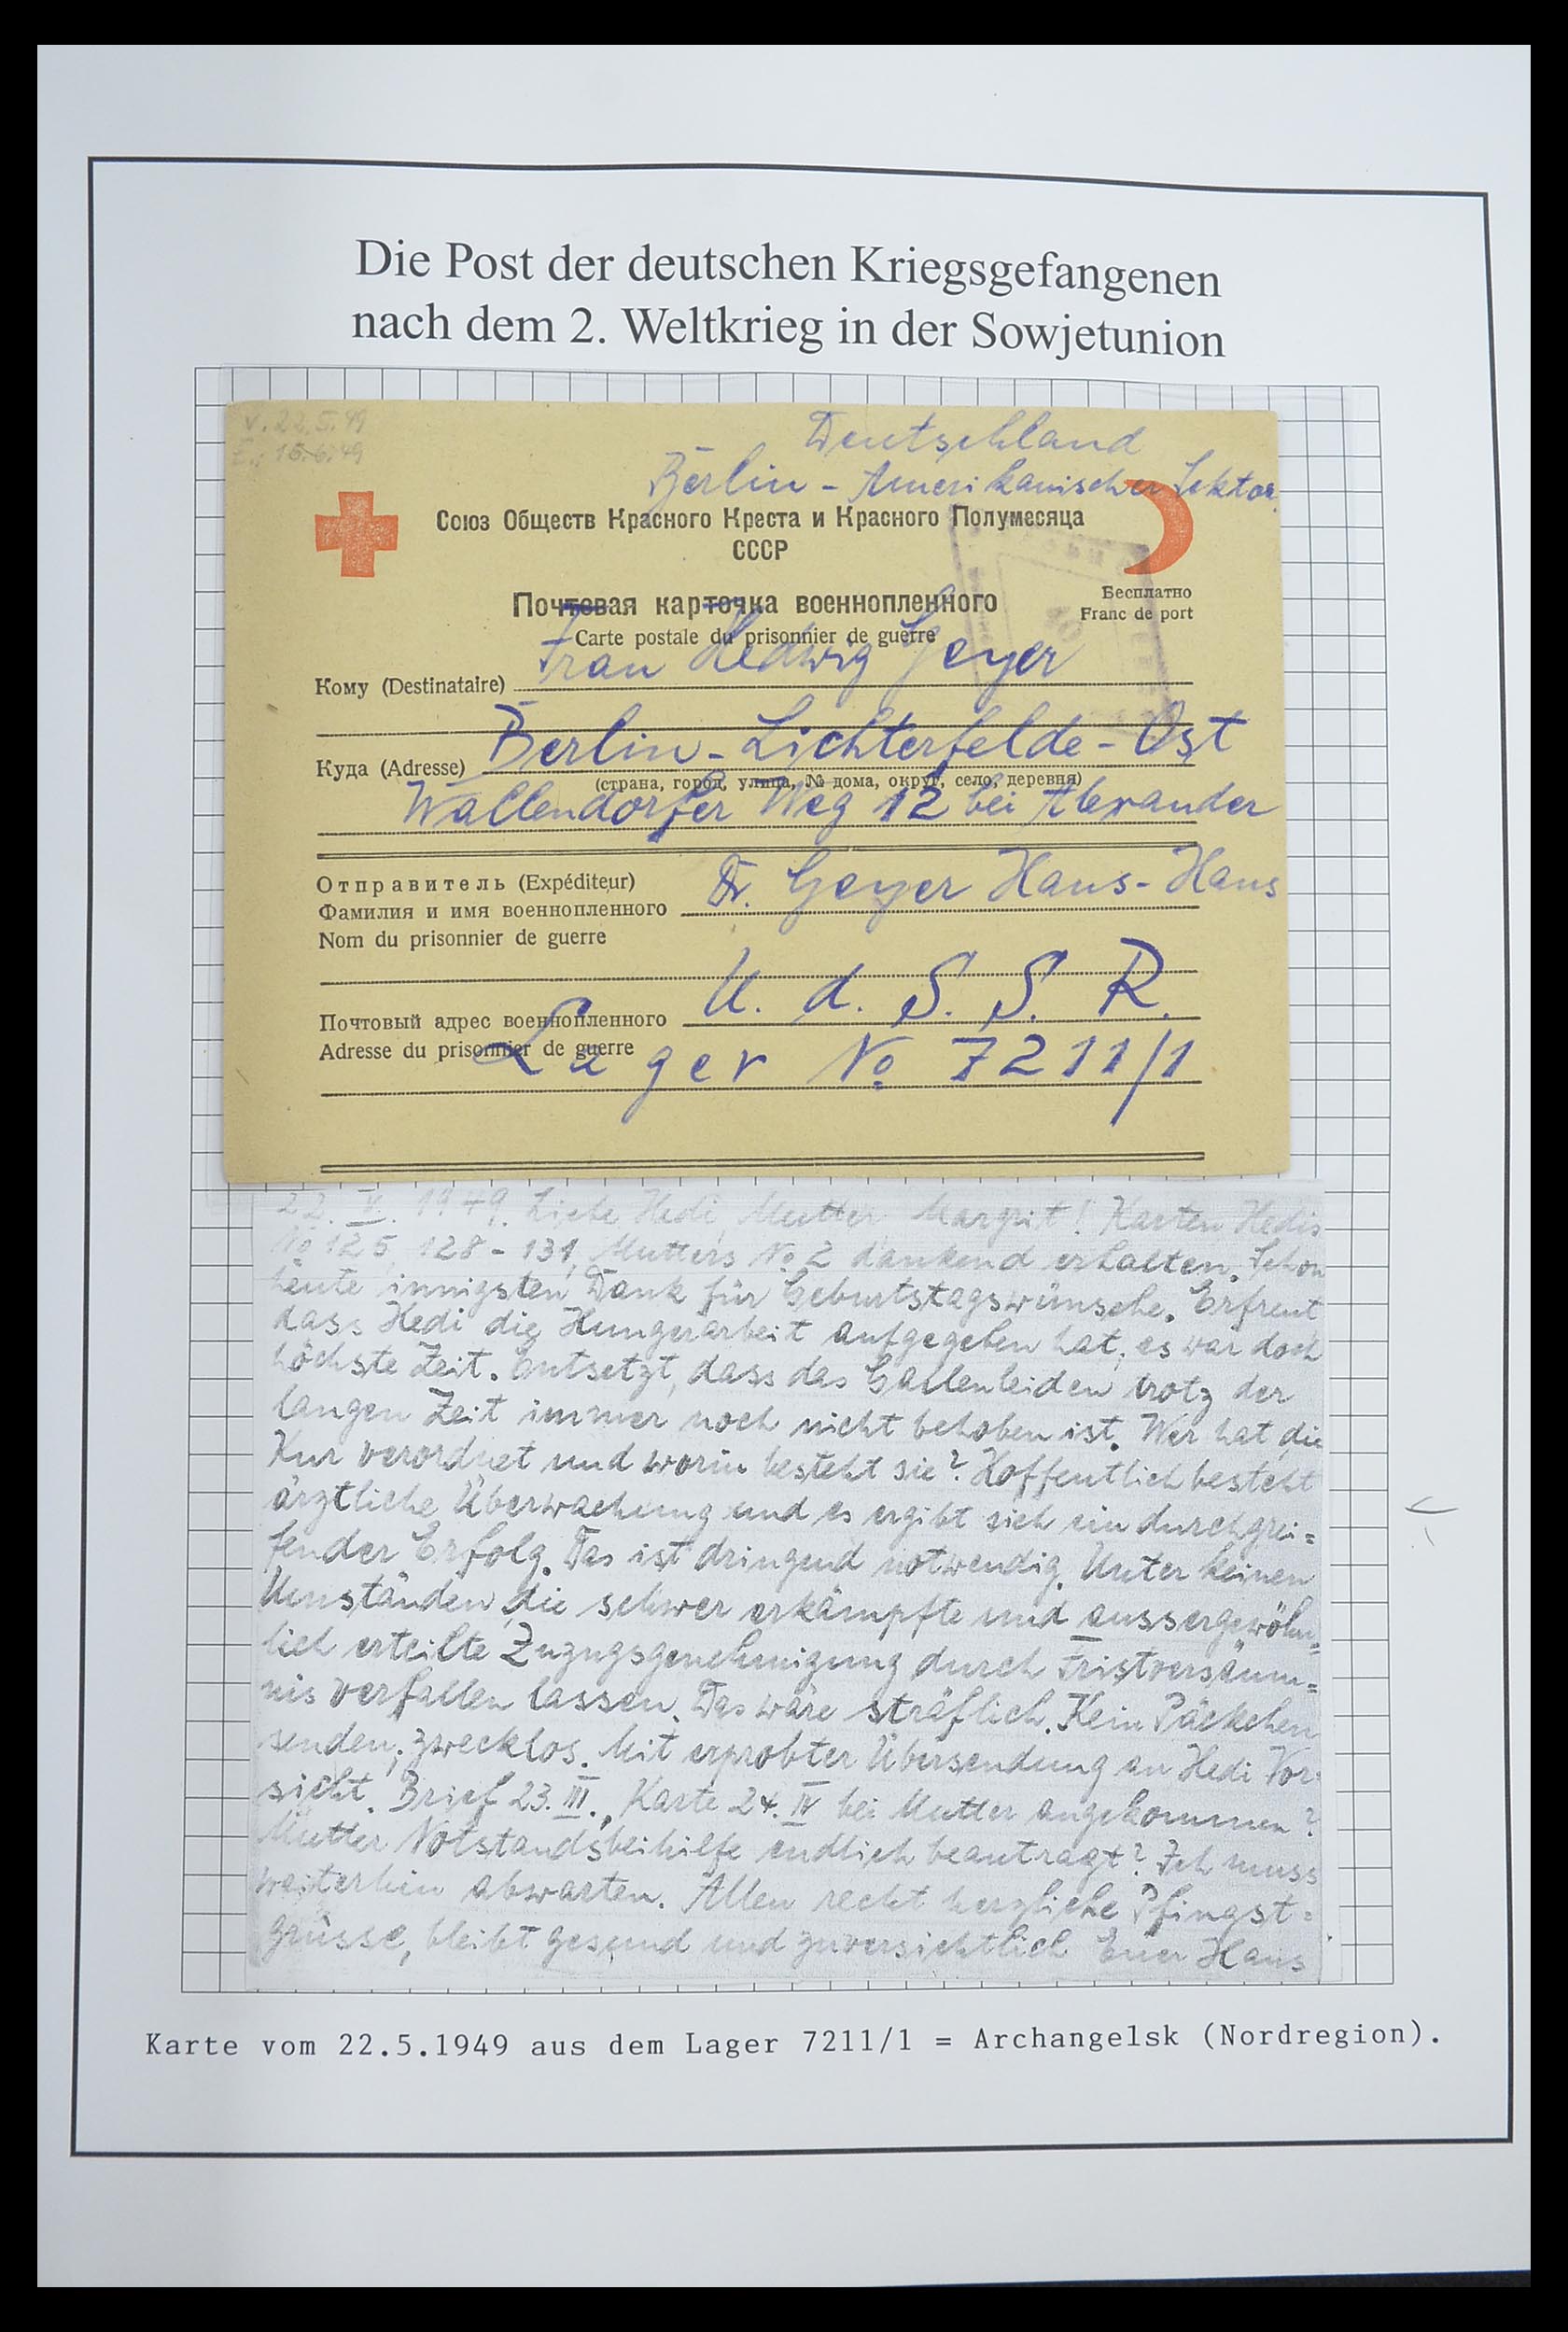 Die Post der deutschen Kriegsgefangenen
nach dem 2. Weltkrieg in der Sowjetunion
v. 22.5.49
E.: 15.6.49
Deutschland
Berlin - Amerikanischer Sektor.
Союз Обществ Красного Креста и Красного Полумесяца
СССР
Почтовая карточка военнопленного
Carte postale du prisonnier de guerre
Бесплатно
Franc de port
Кому (Destinataire) Frau Hedwig Geyer
Куда (Adresse) Berlin-Lichterfelde-Ost
(страна, город, улица, № дома, округ, село, деревня)
Wallendorfer Weg 12 bei Alexander
Отправитель (Expéditeur)
Фамилия и имя военнопленного Dr. Geyer Hans-Hans
Nom du prisonnier de guerre
Почтовый адрес военнопленного U. d. S. S. R.
Adresse du prisonnier de guerre
Lager No 7211/1
22. V. 1949. Liebe Hedi, Mutter Margrit! Karten Hedis
No 125, 128-131, Mutters No 2 dankend erhalten. Schon
heute innigsten Dank für Geburtstagswünsche. Erfreut
dass Hedi die Hungerarbeit aufgegeben hat, es war doch
höchste Zeit. Entsetzt, dass das Gallenleiden trotz der
langen Zeit immer noch nicht behoben ist. Wer hat die
Kur verordnet und worin besteht sie? Hoffentlich besteht
ärztliche Überwachung und es ergibt sich ein durchgrei=
fender Erfolg. Das ist dringend notwendig. Unter keinen
Umständen die schwer erkämpfte und aussergewöhn=
lich erteilte Zuzugsgenehmigung durch Fristversäum=
nis verfallen lassen. Das wäre sträflich. Kein Päckchen
senden, zwecklos. Mit erprobter Übersendung an Hedi Vor=
sicht. Brief 23. III., Karte 24. IV bei Mutter angekommen?
Mutter Notstandsbeihilfe endlich beantragt? Ich muss
weiterhin abwarten. Allen recht herzliche Pfingst=
grüsse, bleibt gesund und zuversichtlich Euer Hans
Karte vom 22.5.1949 aus dem Lager 7211/1 = Archangelsk (Nordregion).